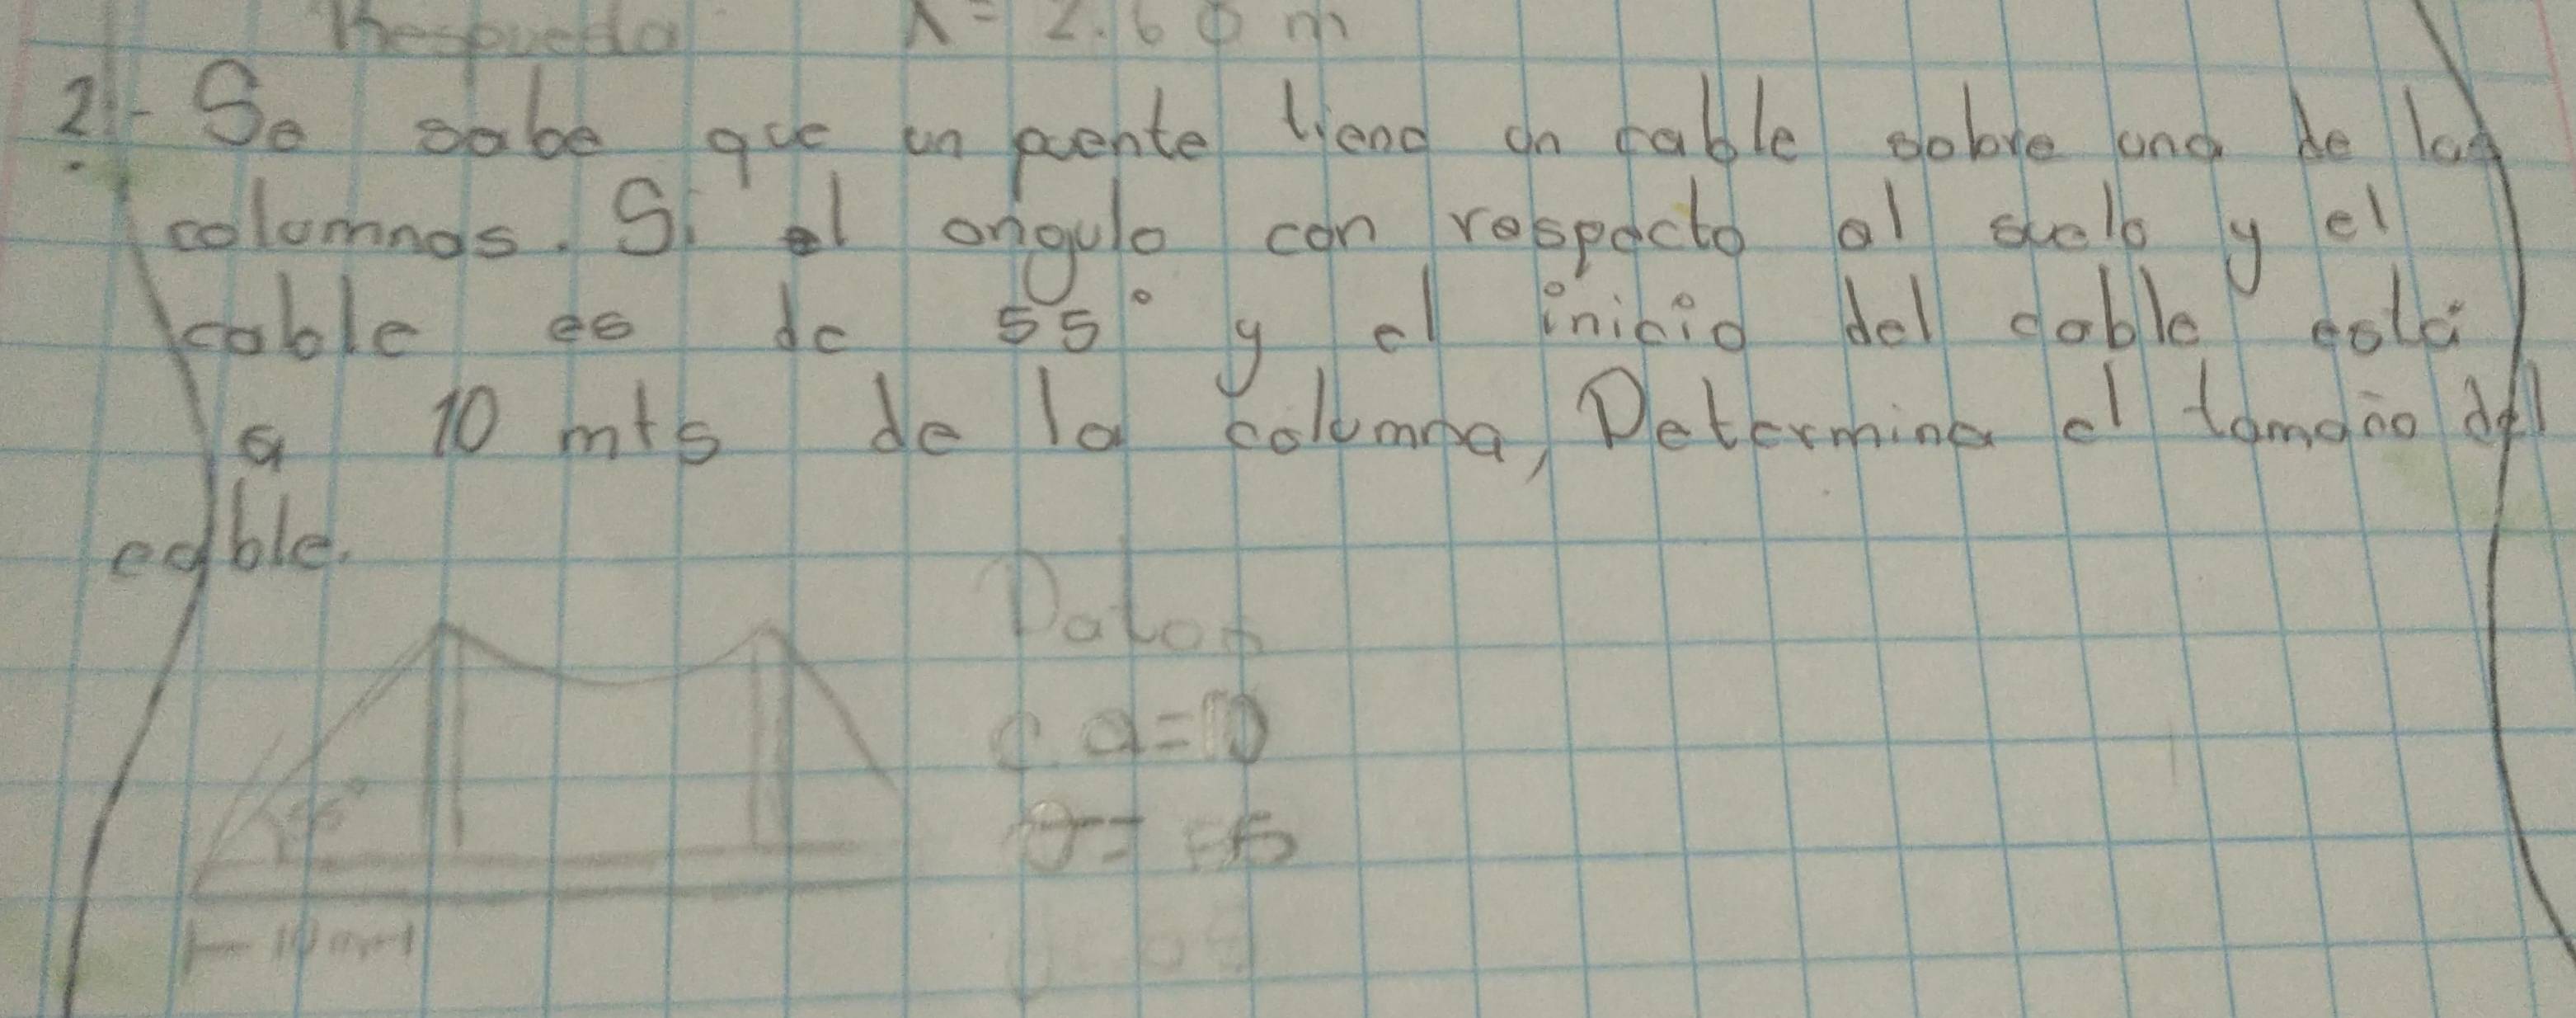 Respuesta x = 2.60 m
2.- Se sabe que un puente tiene un cable sobre una de las
columnas. Si el angulo con respecto al suelo y el
cable es de 55° y el inicio del cable está
a 10 mts de la columna, Determina el tamaño del
cable.
Datos
c.a=10
θ= 55
55°
10 m